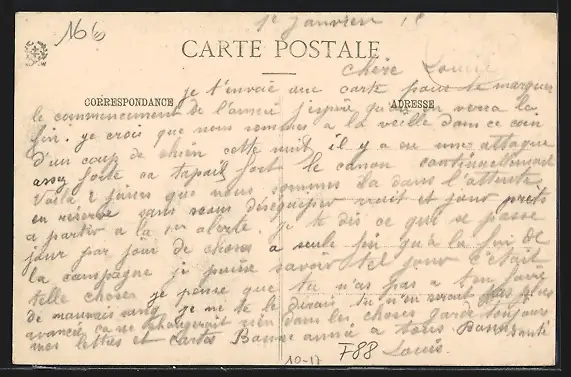 166
1er janvier 18
CARTE POSTALE
Chère Louise
CORRESPONDANCE
ADRESSE
je t'envoie une carte pour te marquer
le commencement de l'année j'espère qu'on verra la
fin. je crois que nous sommes a la veille dans ce coin
d'un coup de chien cette nuit il y a eu une attaque
assez forte ca tapait fort le canon continuellement
Voila 2 jours que nous sommes la dans l'attente
en reserve sans nous déséquiper nuit et jour prêts
a partir a la 1er alerte. je te dis ce qui se passe
jour par jour de choses a seule fin qu'a la fin de
la campagne je puisse savoir tel jour c'était
telle chose je pense que tu n'as pas a t'en faire
de mauvais sang je ne te le dirais tu n'en serais pas plus
avancée ca ne changerait rien dans les choses garde toujours
mes lettres et cartes Bonne année a tous Bonne santé
Louis.
10-17
F88